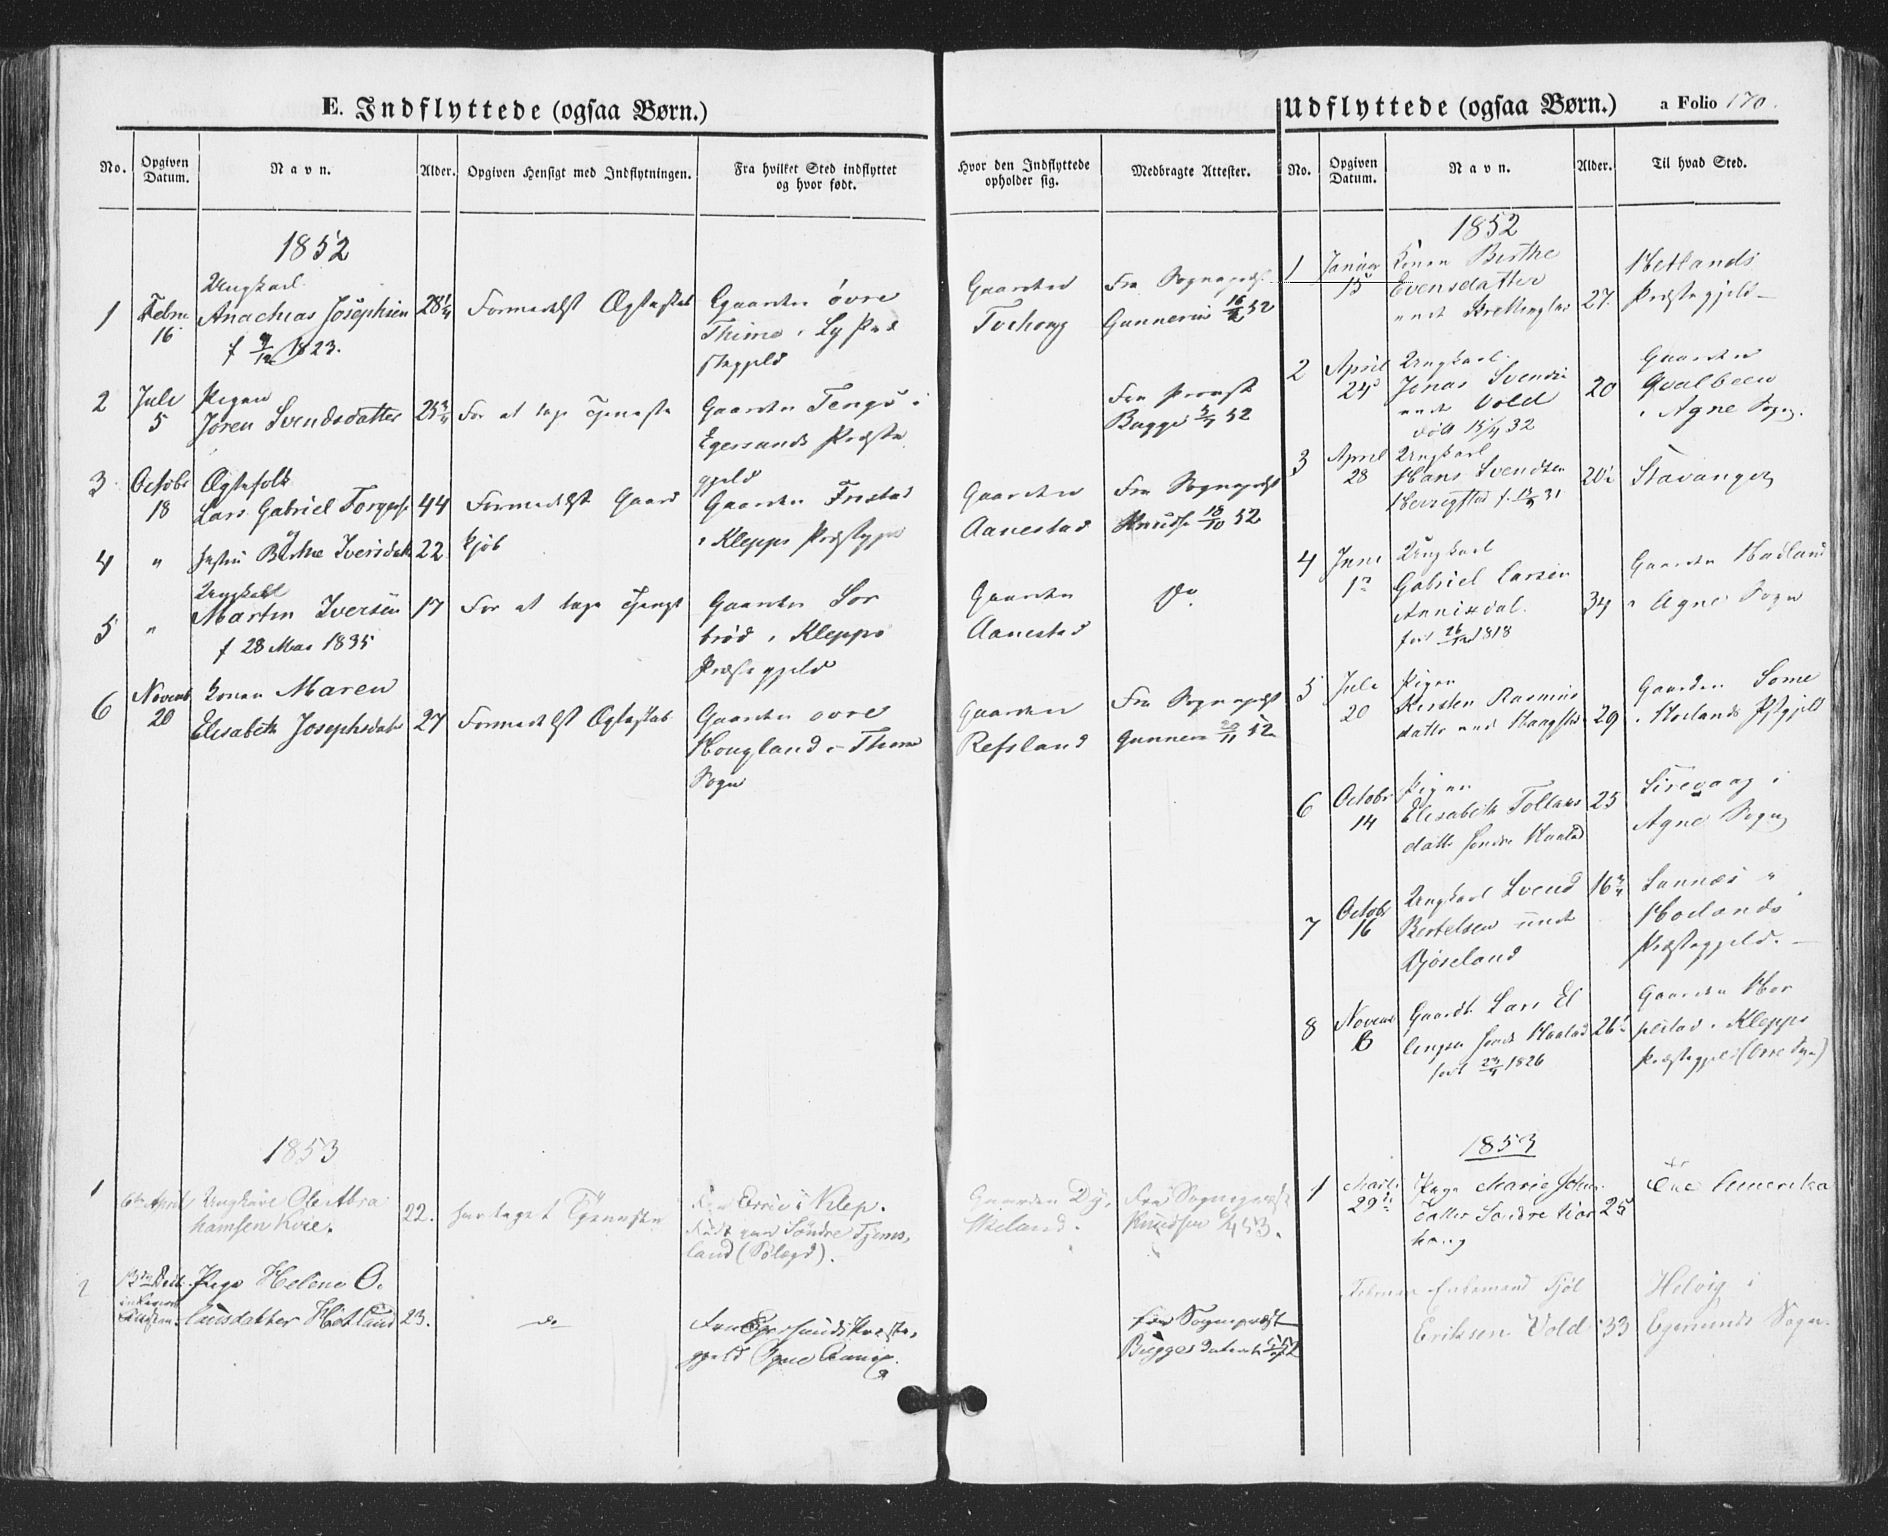 E. Indflyttede (ogsaa Børn.)
No.
Opgiven Datum.
Navn.
Alder.
Opgiven Hensigt med Indflytningen.
Fra hvilket Sted indflyttet og hvor født.
Hvor den Indflyttede opholder sig.
Medbragte Attester.
1852
1
Febru
16
Ungkarl
Anachias Josephsen
f 9/12 1823.
28 1/4
Formedelst Ægteskab
Gaarden øvre
Thime i Ly Præ
stegjeld
Gaarden
Tvihoug
Fra Sognepræst
Gunnerius 52
2
Juli
5
Pigen
Joren Svendsdatter
25 3/4
For at tage Tjeneste
Gaarden Tengs i
Egersunds Præste
gjeld
Fra Provst
Bugge 5/7 52
3
Octobr
18
Ægtefolk
Lars Gabriel Torgers
44
Formedelst Gaard
kjøb
Gaarden Friestad
i Klepps Præstegj
Gaarden
Aanestad
Fra Sognepræst
Knudsen 18/10 52
4
"
Hustru Birthe Iversdatt
22
5
"
Ungkarl
Martin Iversen
f 28 Mai 1835
17
For at tage Tjenest
Gaarden Sør
brød i Klepps
Præstegjeld
Gaarden
Aanestad
do
6
Novemb
20
Konen Maren
Elisabeth Josephsdatter
27
Formedelst Ægteskab
Gaarden øvre
Hougland i Thime
Sogn
Gaarden
Refsland
Fra Sognepræst
Gunnerus 20/11 52
1853
1
6te April
Ungkarl Ole Abra
hamsen Kvie.
22.
for taget Tjeneste
Fra Orre i Klep.
Født paa Søndre Tjems,
land
Gaarden Dy,
Fra Sognepræst
Knudsen 6/4 53.
2
Pige Helene O.
lausdatter Hetland
23.
do
Fra Egersunds Præste,
gjeld Ogne Annex.
fra Sognepræst
Bugges
Udflyttede (ogsaa Børn.)
a Folio 170.
No.
Opgiven Datum.
Navn.
Alder.
Til hvad Sted.
1852
1
Januar
15
Konen Berthe
Evensdatter
27
Hetlands
Præstegjeld
2
April
24
Ungkarl
Jonas Svendsen
Vold
født 15/4 32
20
Gaarden
Qvalbeen
i Agne Sogn.
3
April
28
Ungkarl
Hans Svendsen
20
Stavanger
4
Juni
Ungkarl
Gabriel Larsen
Annisdal
født 26/12 1818
34
Gaarden Hadland
i Agne Sogn
5
Juli
20
Pigen
Kirsten Rasmus
datter
29
Gaarden Some
i Hoilands Pstgjeld
6
Octobr
14
Pigen
Elisabeth Tollaks
datter søndre Haaland
25
Sirevaag i
Agne Sogn
7
Octobr
16
Ungkarl Svend
Bertelsen
Djøseland
16 3/4
Sannæs i
Hoilands
Præstegjeld.
8
Novemb
Gaardb. Lars El
lingsen søndre Haaland
født 1826
26
Gaarden Hor
pestad i Klepps
Præstegjeld (Orre Sogn)
1853
1
Marts
29
Pige Marie John
datter Søndre
25
Til Amerika
Februar
Enkemand Kjøl
Eriksen Vold
33
Helvig i
Egersunds Sogn.